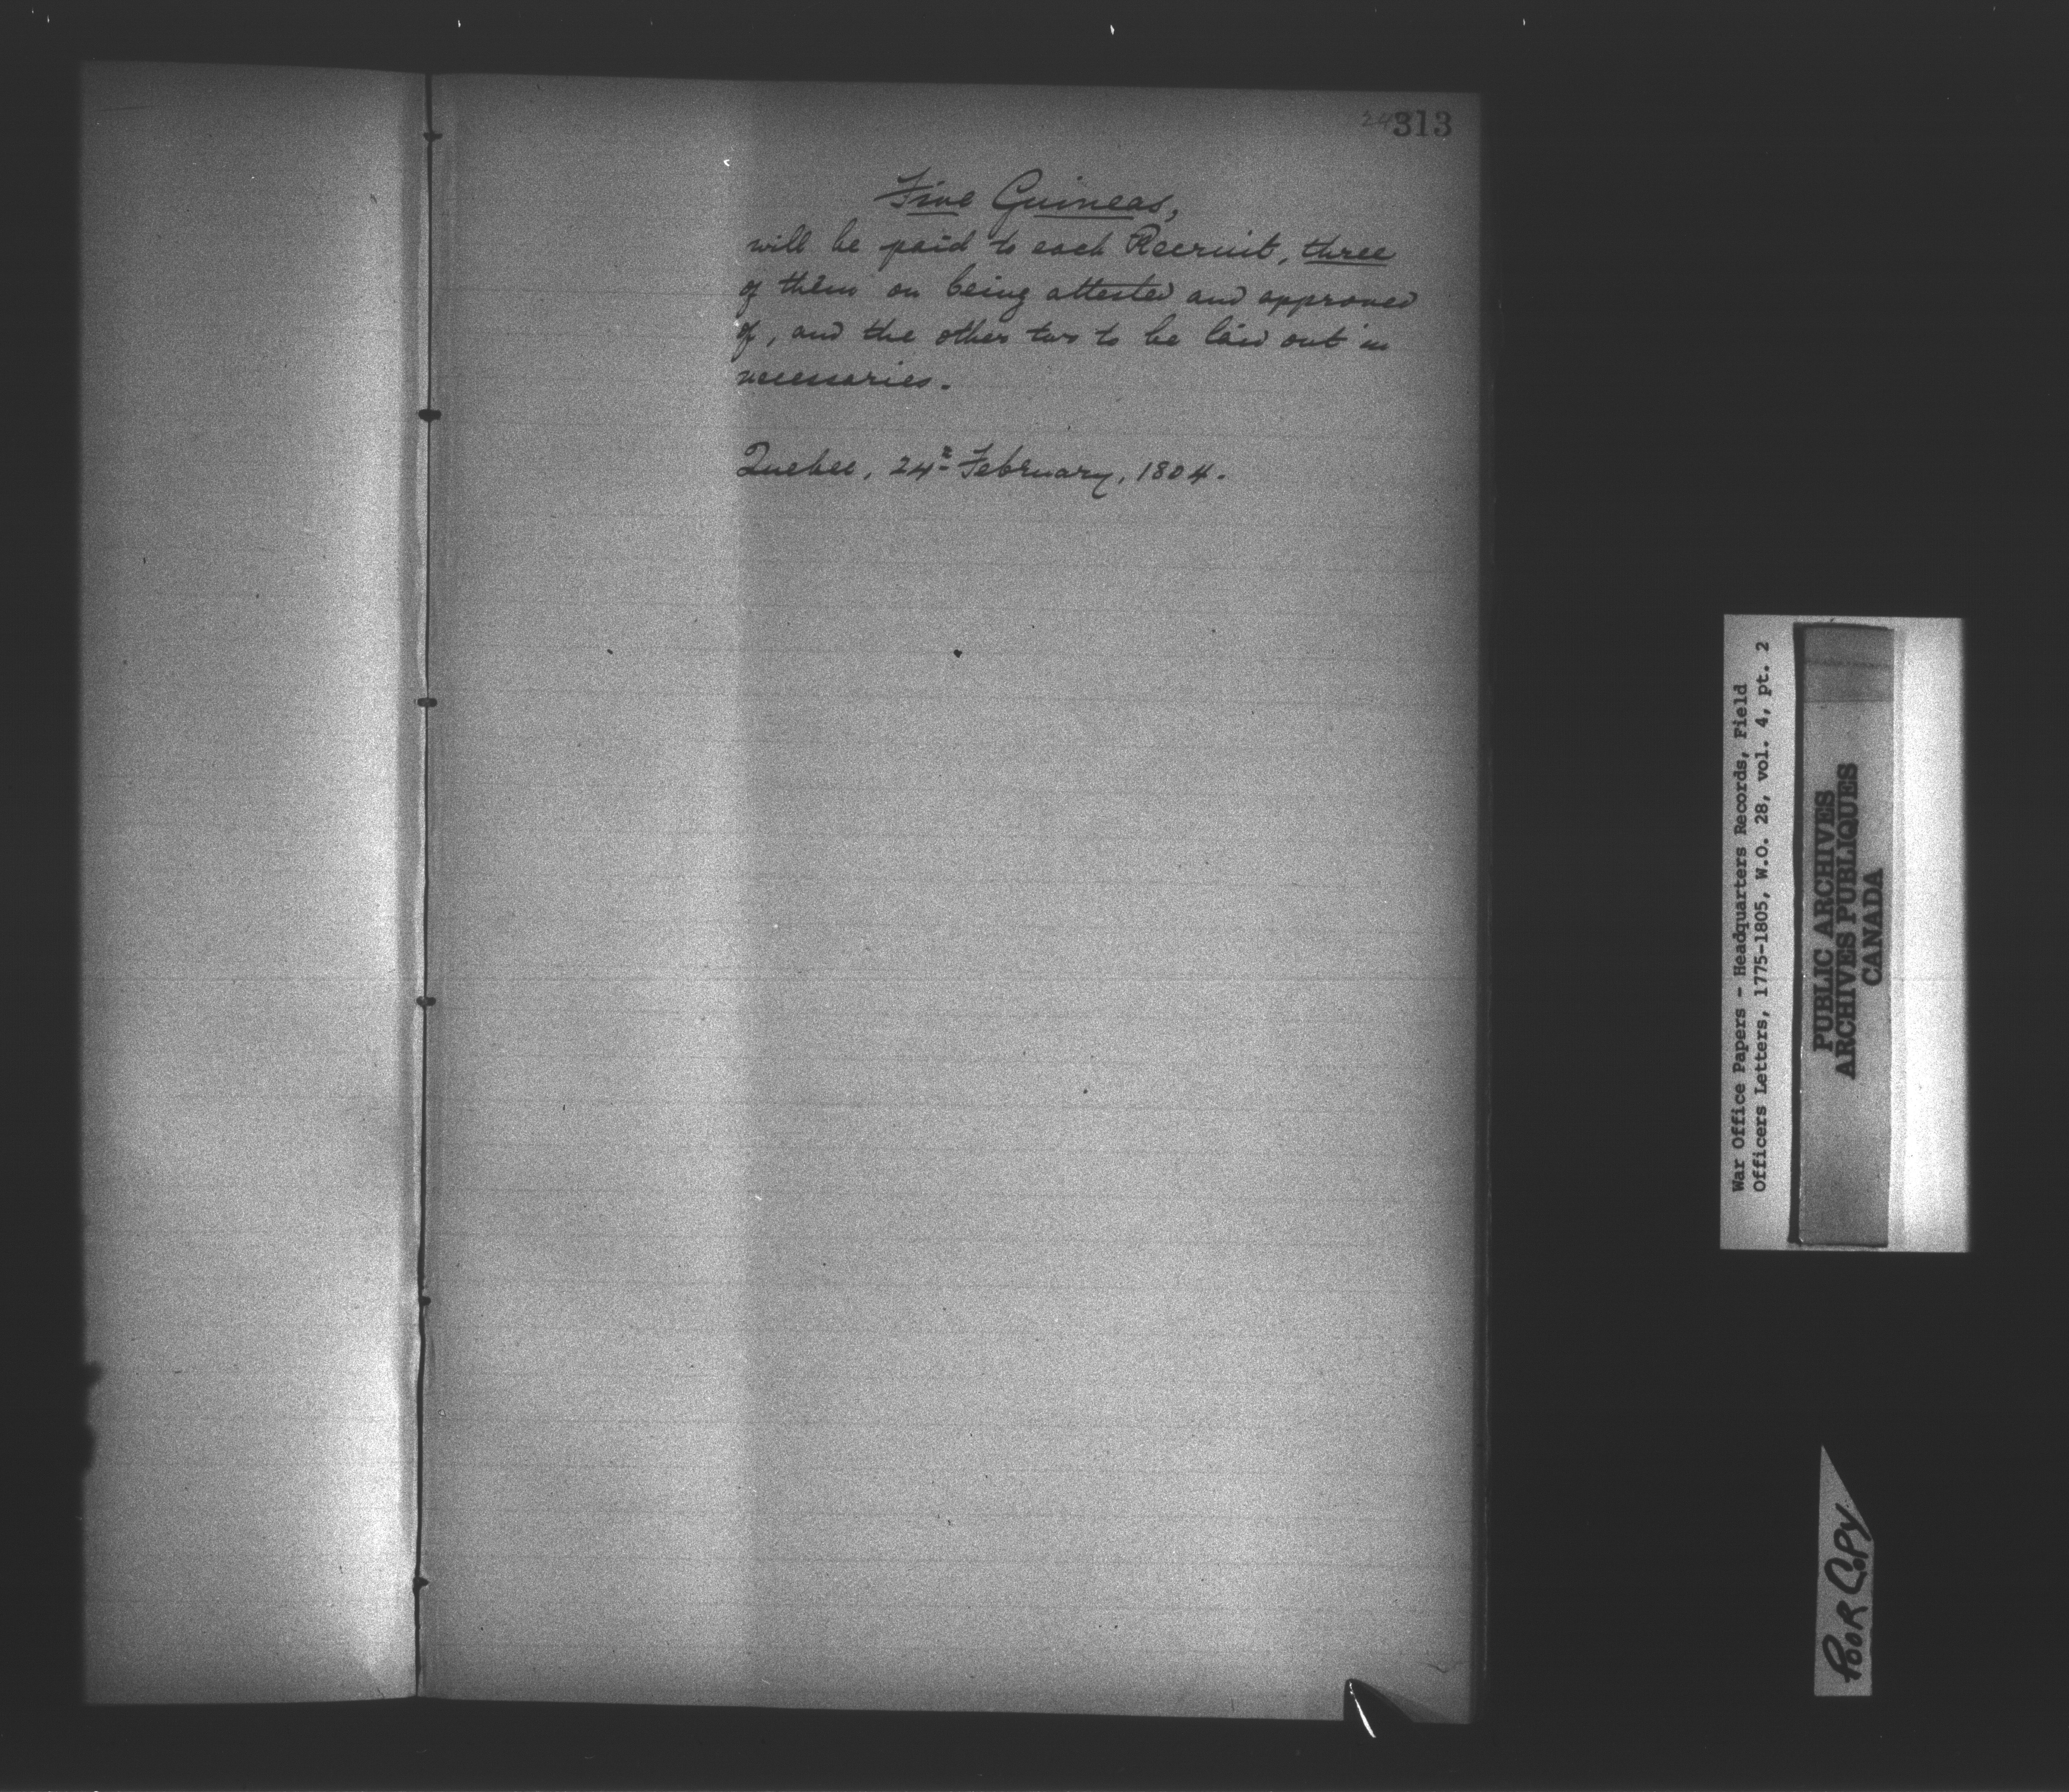 313
Five Guineas,
will be paid to each Recruit, three
of them on being attested and approved
of, and the other two to be laid out in
necessaries.
Quebec, 24th February, 1804.
War Office Papers - Headquarters Records, Field
Officers Letters, 1775-1805, W.O. 28, vol. 4, pt. 2
PUBLIC ARCHIVES
ARCHIVES PUBLIQUES
CANADA
POOR COPY